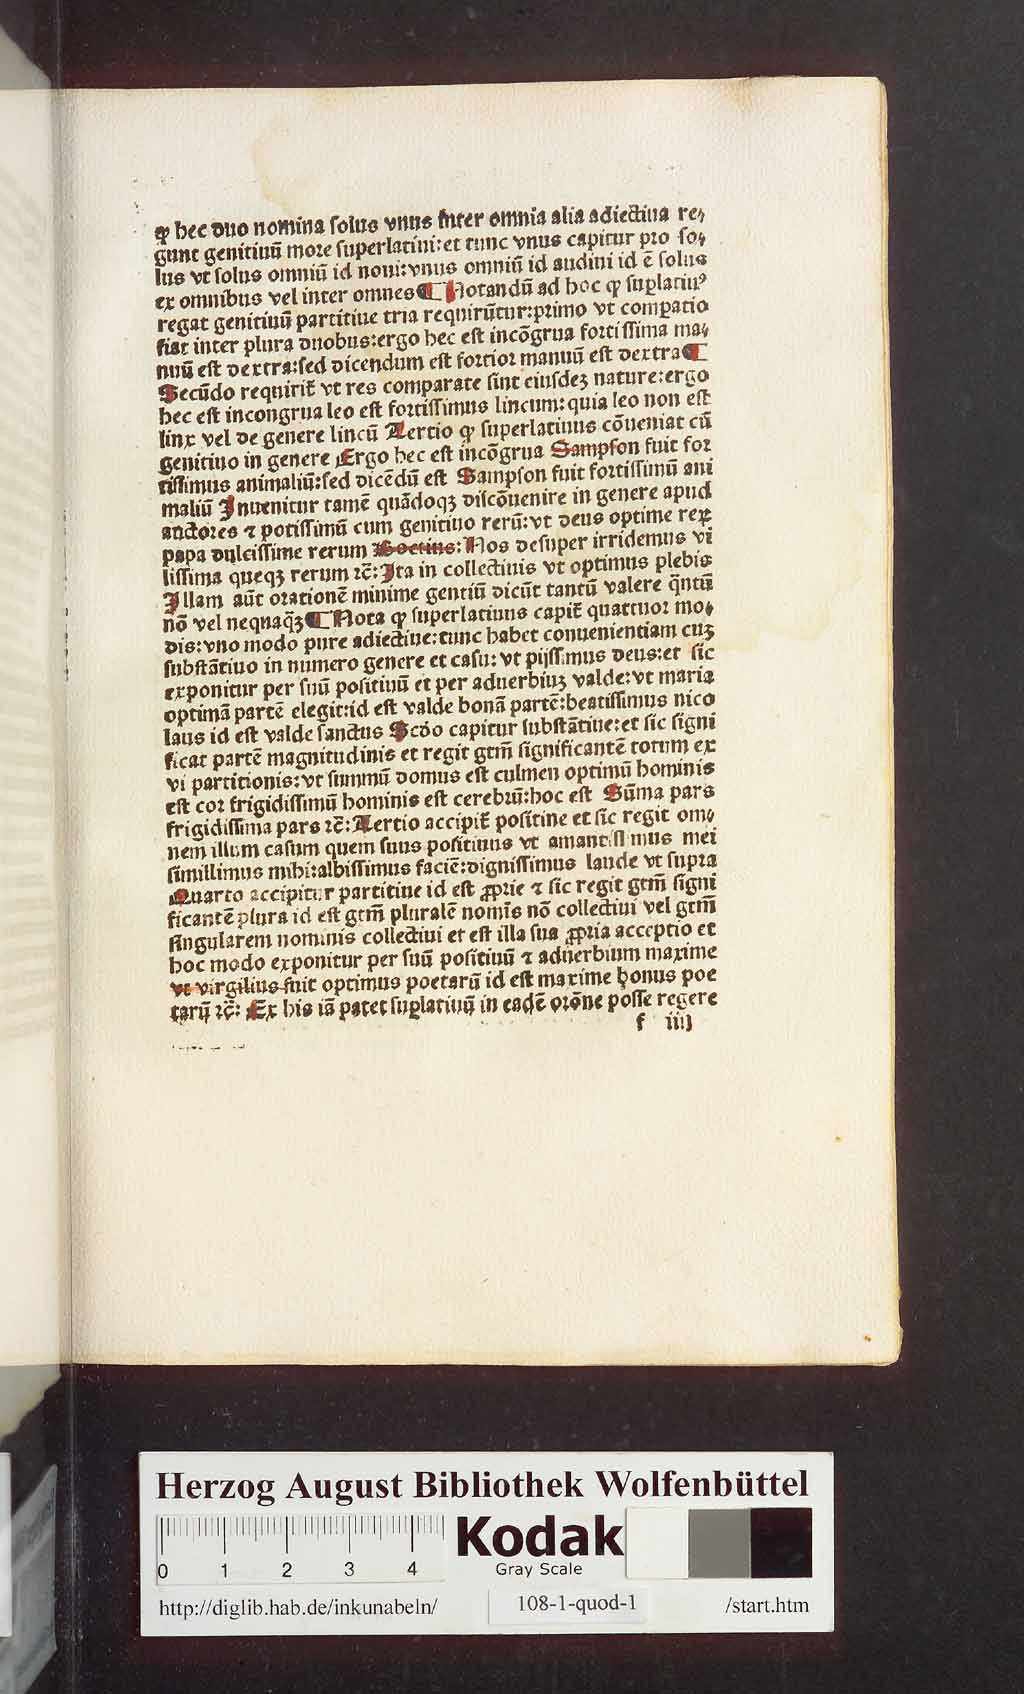 ꝙ hec duo nomina solus vnus inter omnia alia adiectiua re⸗
gunt genitiuū more superlatiui: et tunc vnus capitur pro so⸗
lus vt solus omniū id noui: vnus omniū id audiui id ē solus
ex omnibus vel inter omnes ¶ Notandū ad hoc ꝙ suꝑlatiuꝰ
regat genitiuū partitiue tria requirūtur: primo vt comꝑatio
fiat inter plura duobus: ergo hec est incōgrua fortissima ma⸗
nuū est dextra: sed dicendum est fortior manuū est dextra ¶
Secūdo requirit̄ vt res comparate sint eiusdeꝫ nature: ergo
hec est incongrua leo est fortissimus lincum: quia leo non est
linx vel de genere lincū Tertio ꝙ superlatiuus cōueniat cū
genitiuo in genere Ergo hec est incōgrua Sampson fuit for
tissimus animaliū: sed dicēdū est Sampson fuit fortissimū ani
maliū Inuenitur tamē quādoqꝫ discōuenire in genere apud
auctores ⁊ potissimū cum genitiuo rerū: vt deus optime rex
papa dulcissime rerum Boetius: Nos desuper irridemus vi
lissima queqꝫ rerum ⁊c̄: Ita in collectiuis vt optimus plebis
Illam aūt orationē minime gentiū dicūt tantū valere q̄ntū
nō vel nequaq̄ꝫ ¶ Nota ꝙ superlatiuus capit̄ quattuor mo⸗
dis: vno modo pure adiectiue: tunc habet conuenientiam cuꝫ
substātiuo in numero genere et casu: vt pijssimus deus: et sic
exponitur per suū positiuū et per aduerbiuꝫ valde: vt maria
optimā partē elegit: id est valde bonā partē: beatissimus nico
laus id est valde sanctus Scd̄o capitur substātiue: et sic signi
ficat partē magnitudinis et regit gtm̄ significantē totum ex
vi partitionis: vt summū domus est culmen optimū hominis
est cor frigidissimū hominis est cerebrū: hoc est Sūma pars
frigidissima pars ⁊c̄: Tertio accipit̄ positiue et sic regit om⸗
nem illum casum quem suus positiuus vt amantissimus mei
simillimus mihi: albissimus faciē: dignissimus laude vt supra
Quarto accipitur partitiue id est ꝓprie ⁊ sic regit gtm̄ signi
ficantē plura id est gtm̄ pluralē nomīs nō collectiui vel gtm̄
singularem nominis collectiui et est illa sua ꝓpria acceptio et
hoc modo exponitur per suū positiuū ⁊ aduerbium maxime
vt virgilius fuit optimus poetarū id est maxime bonus poe
tarū ⁊c̄: Ex his iā patet suꝑlatiuū in eadē or̄one posse regere
f iiij
Herzog August Bibliothek Wolfenbüttel
0 1 2 3 4
Kodak
Gray Scale
http://diglib.hab.de/inkunabeln/ 108-1-quod-1 /start.htm